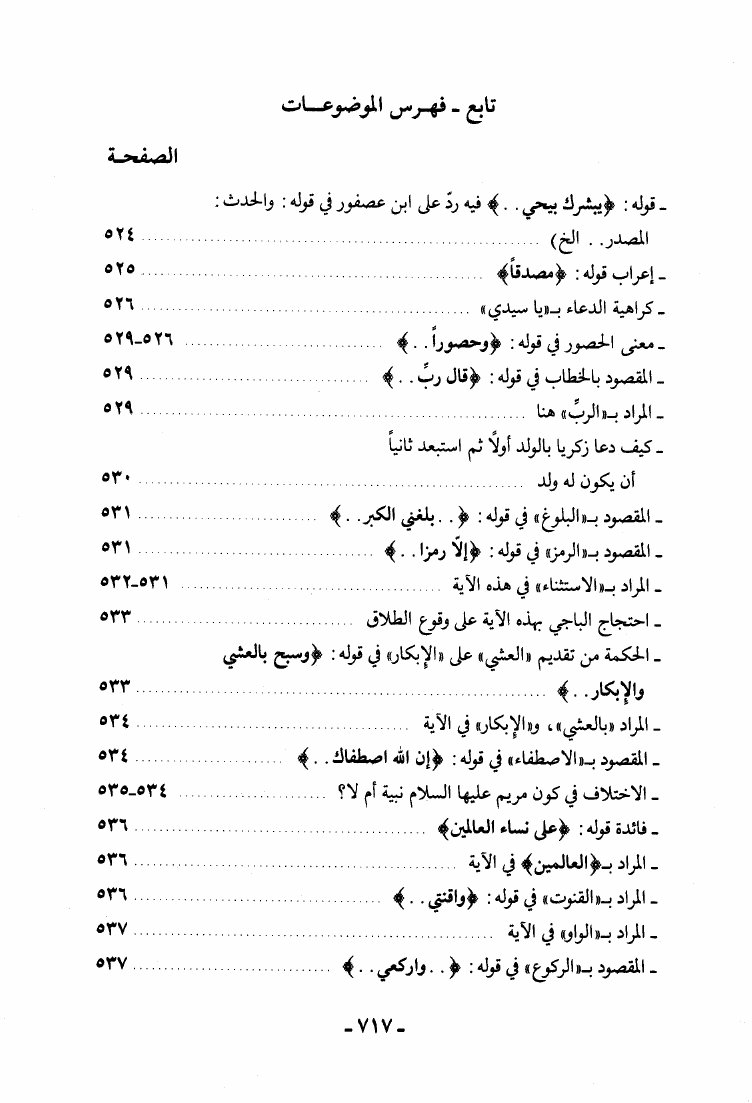 تابع ـ فهـرس الموضوعـــات
الصفحـة
ـ قوله : ﴿يبشرك بيحي . .﴾ فيه ردّ على ابن عصفور في قوله : والحدث :
المصدر . . الخ) ٥٢٤
ـ إعراب قوله : ﴿مصدقاً﴾ ٥٢٥
ـ كراهية الدعاء بـ«يا سيدي» ٥٢٦
ـ معنى الحصور في قوله : ﴿وحصوراً . .﴾ ٥٢٦ـ٥٢٩
ـ المقصود بالخطاب في قوله : ﴿قال ربِّ . .﴾ ٥٢٩
ـ المراد بـ«الربِّ» هنا ٥٢٩
ـ كيف دعا زكريا بالولد أولاً ثم استبعد ثانياً
أن يكون له ولد ٥٣٠
ـ المقصود بـ«البلوغ» في قوله : ﴿. . بلغني الكبر . .﴾ ٥٣١
ـ المقصود بـ«الرمز» في قوله : ﴿إلاّ رمزا . .﴾ ٥٣١
ـ المراد بـ«الاستثناء» في هذه الآية ٥٣١ـ٥٣٢
ـ احتجاج الباجي بهذه الآية على وقوع الطلاق ٥٣٣
ـ الحكمة من تقديم «العشي» على «الإبكار» في قوله : ﴿وسبح بالعشي
والإبكار . .﴾ ٥٣٣
ـ المراد «بالعشي» ، و«الإبكار» في الآية ٥٣٤
ـ المقصود بـ«الاصطفاء» في قوله : ﴿إن الله اصطفاك . .﴾ ٥٣٤
ـ الاختلاف في كون مريم عليها السلام نبية أم لا؟ ٥٣٤ـ٥٣٥
ـ فائدة قوله : ﴿على نساء العالمين﴾ ٥٣٦
ـ المراد بـ﴿العالمين﴾ في الآية ٥٣٦
ـ المراد بـ«القنوت» في قوله : ﴿واقنتي . .﴾ ٥٣٦
ـ المراد بـ«الواو» في الآية ٥٣٧
ـ المقصود بـ«الركوع» في قوله : ﴿. . واركعي . .﴾ ٥٣٧
ـ ٧١٧ ـ